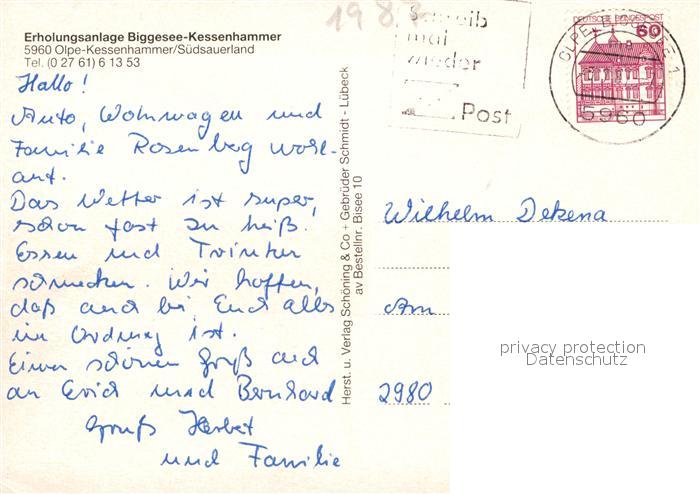 1983
Erholungsanlage Biggesee-Kessenhammer
5960 Olpe-Kessenhammer/Südsauerland
Tel. (0 27 61) 6 13 53
Schreib
mal
wieder
Post
DEUTSCHE BUNDESPOST
60
OLPE, BIGGESEE 1
5960
Hallo!
Auto, Wohnwagen und
Familie Rosenberg wohl-
auf.
Das Wetter ist super,
schon fast zu heiß.
Essen und Trinken
schmecken. Wir hoffen,
daß auch bei Euch alles
in Ordnung ist.
Einen schönen Gruß auch
an Erich und Bernhard
Gruß Herbert
und Familie
Herst. u. Verlag Schöning & Co + Gebrüder Schmidt - Lübeck
av Bestellnr. Bisee 10
Wilhelm Dekena
Am
2980
privacy protection
Datenschutz